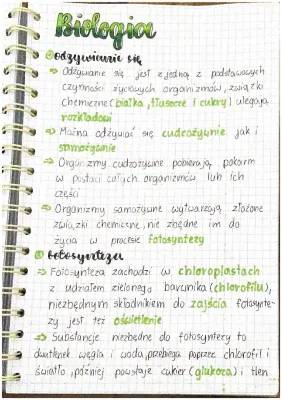 Biologia
odżywianie się
⇒ Odżywanie się jest zjedną z podstawowych
czynności życiowych organizmów, związki
chemiczne (białka, tłuszcze i cukry) ulegają
rozkładowi
⇒ Można odżywiać się cudzożywnie jak i
samożywnie
⇒ Organizmy cudzożywne pobierają pokarm
w postaci całych organizmów lub ich
części
⇒ Organizmy samożywne wytwarzają złożone
związki chemiczne, nie zbędne im do
życia w procesie fotosyntezy
fotosynteza
⇒ Fotosynteza zachodzi w chloroplastach
z udziałem zielonego barwnika (chlorofilu),
niezbędnym składnikiem do zajścia fotosynte-
zy jest też oświetlenie
⇒ Substancje niezbędne do fotosyntezy to
dwutlenek węgla i woda, przebiega poprzez chlorofil i
światło, później powstaje cukier (glukoza) i tlen